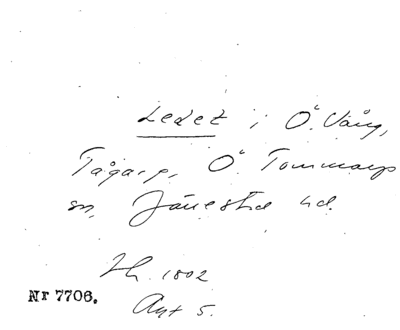 Ledet i Ö. Vång,
Tågarp, Ö. Tommarps
sn, Järrestad hd.
Lh. 1802
Akt 5.
Nr 7706.